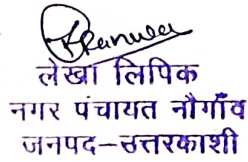 लेखा लिपिक
नगर पंचायत नौगाँव
जनपद-उत्तरकाशी